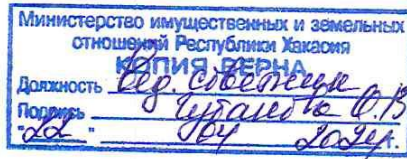 Министерство имущественных и земельных
отношений Республики Хакасия
КОПИЯ ВЕРНА
Должность Вед. советник
Подпись
"22" 04 2024г.